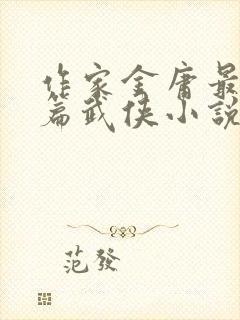 作家金庸最
篇武俠小說
范發